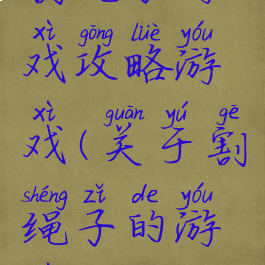 xì gōng lüè yóu
戏攻略游
xì guān yú gē
戏(关于割
shéng zǐ de yóu
绳子的游